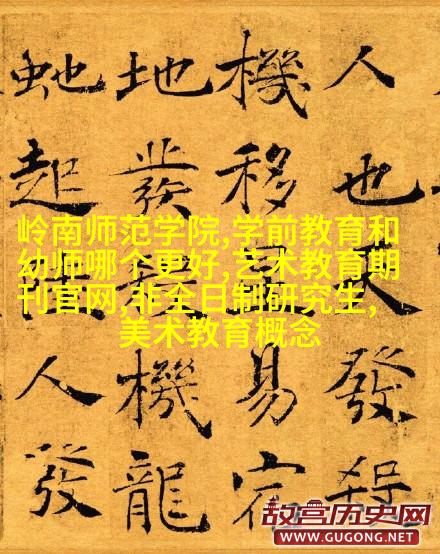 人也發殺
機移易宿
地發機龍
虵起人發
岭南师范学院,学前教育和
幼师哪个更好,艺术教育期
刊官网,非全日制研究生,
美术教育概念
故宫历史网
WWW.GUGONG.NET